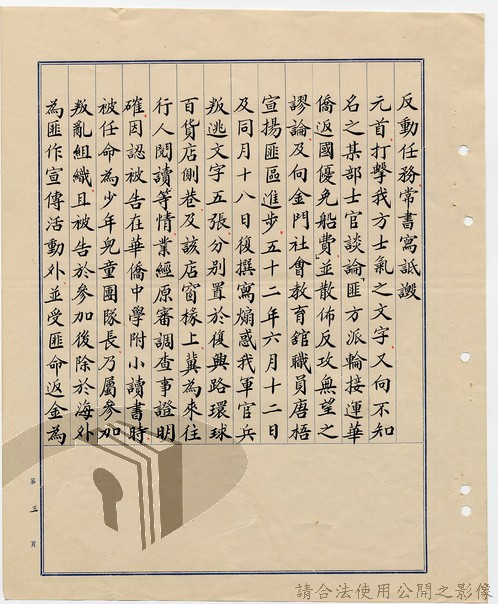 反動任務常書寫詆譭
元首打擊我方士氣之文字又向不知
名之某部士官談論「匪方派輪接運華
僑返國優免船費」並散佈反攻無望之
謬論及向金門社會教育館職員唐梧
宣揚匪區進步五十二年六月十二日
及同月十八日復撰寫煽惑我軍官兵
叛逃文字五張分別置於復興路環球
百貨店側巷及該店窗椽上冀為來往
行人閱讀等情業經原審調查事證明
確因認被告在華僑中學附小讀書時
被任命為少年兒童團隊長乃屬參加
叛亂組織且被告於參加後除於海外
為匪作宣傳活動外並受匪命返金為
第三頁
請合法使用公開之影像